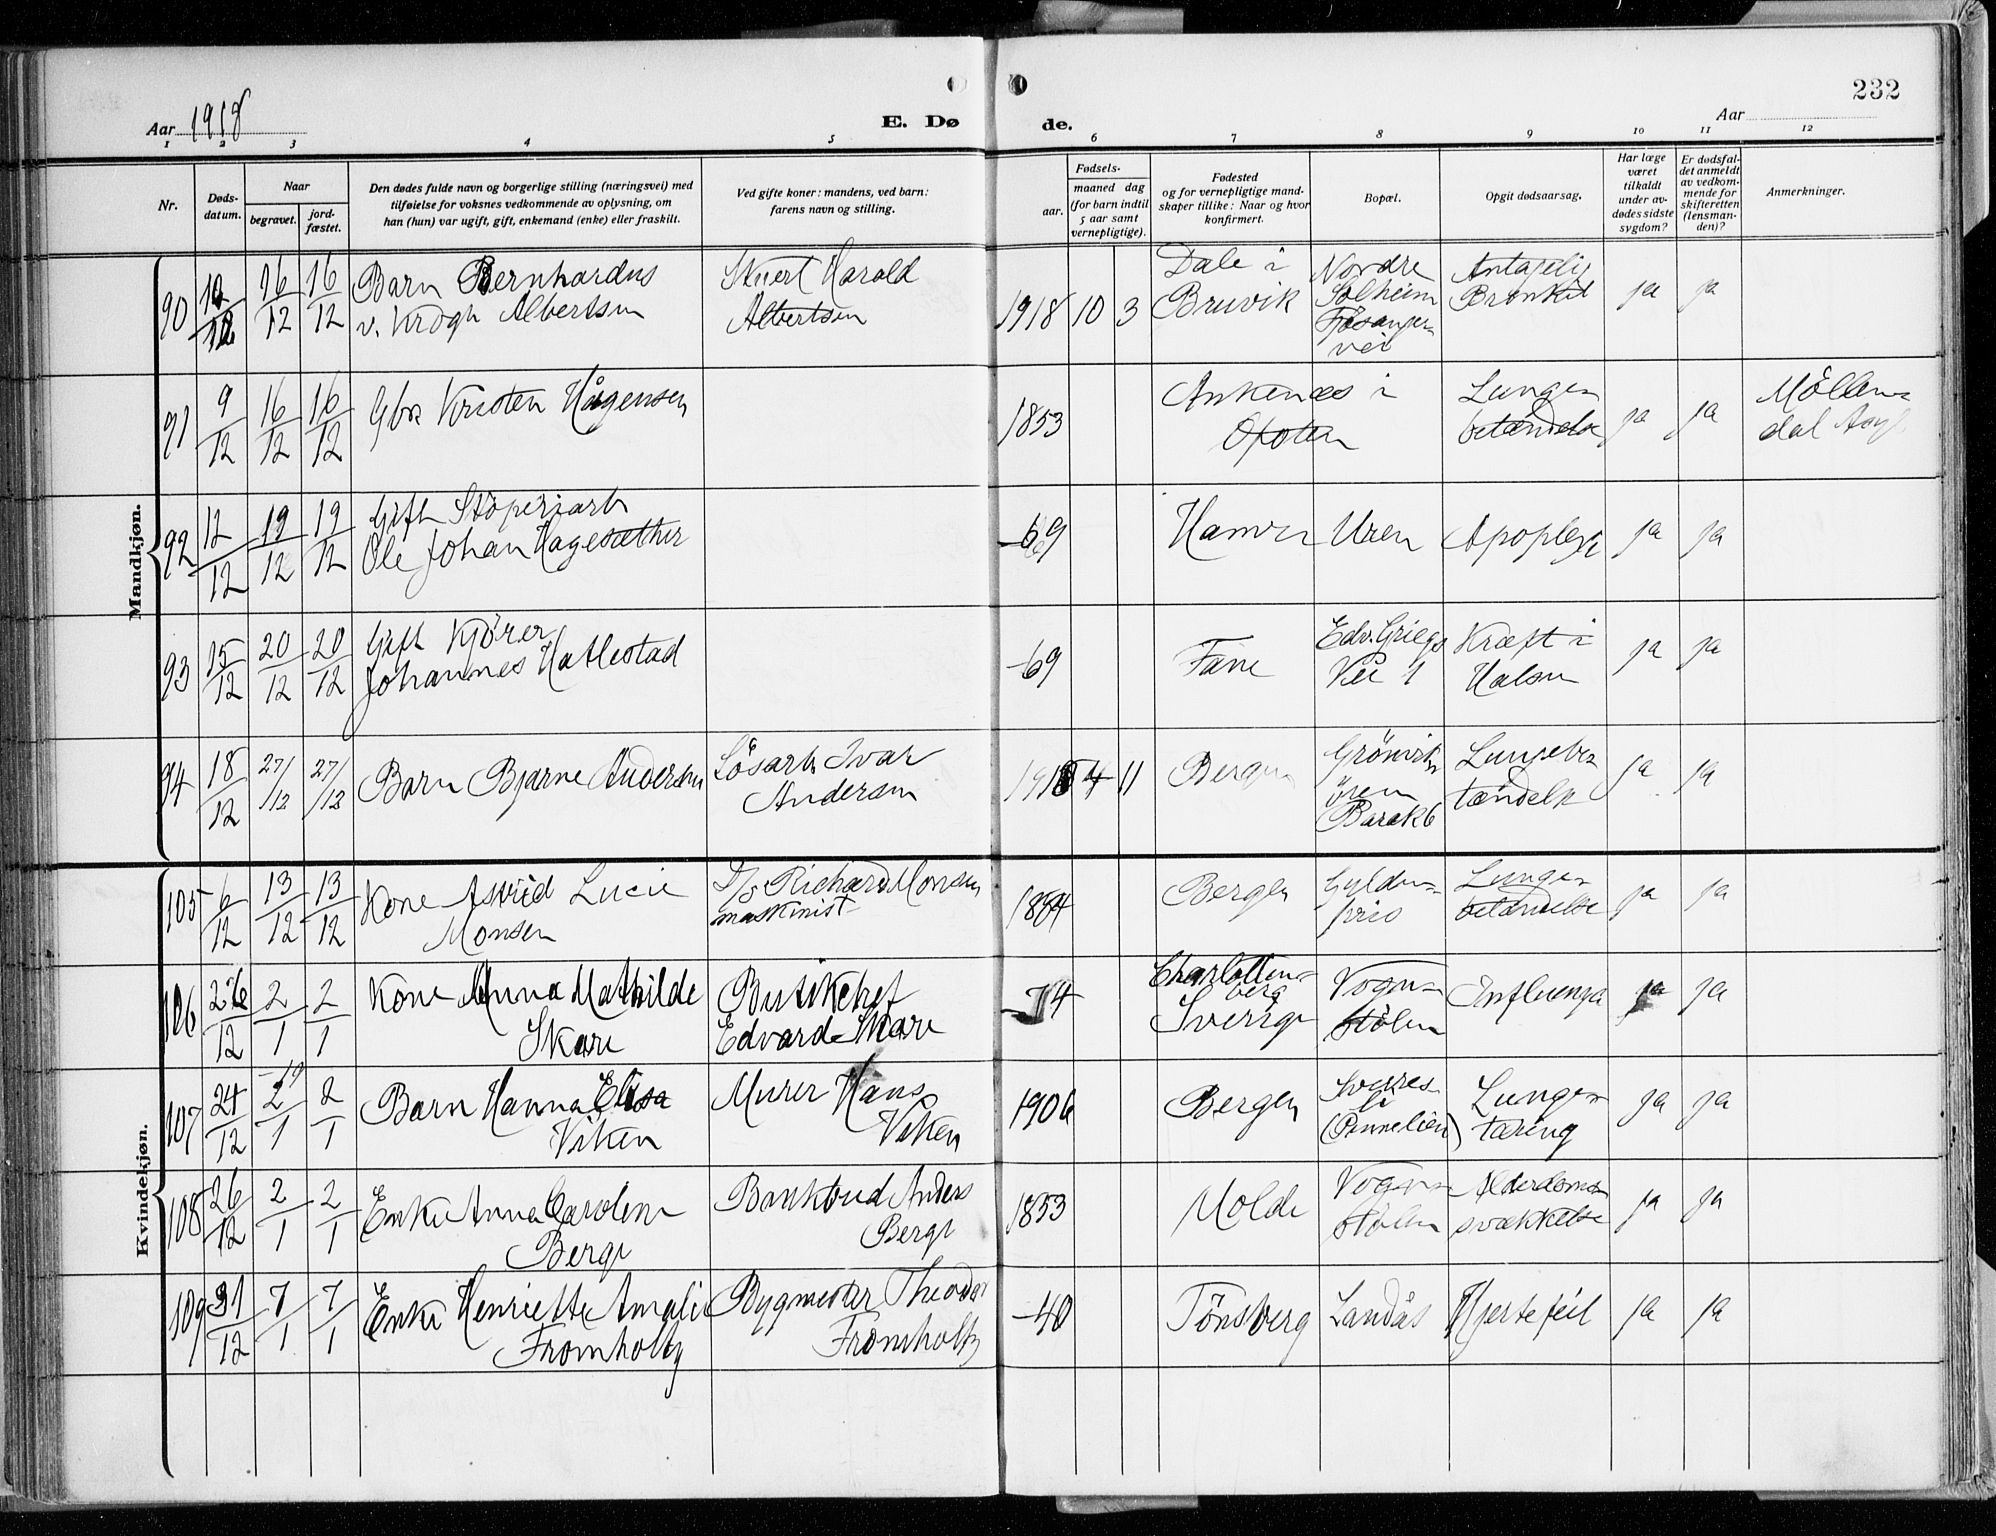 232
Aar 1918
E. Dø de.
Aar
1 2 3 4 5 6 7 8 9 10 11 12
Nr.
Døds-
datum.
Naar
begravet.
jord-
fæstet.
Den dødes fulde navn og borgerlige stilling (næringsvei) med
tilføielse for voksnes vedkommende av oplysning, om
han (hun) var ugift, gift, enkemand (enke) eller fraskilt.
Ved gifte koner: mandens, ved barn:
farens navn og stilling.
Fødsels-
aar.
maaned dag
(for barn indtil
5 aar samt
vernepligtige).
Fødested
og for vernepligtige mand-
skaper tillike: Naar og hvor
konfirmert.
Bopæl.
Opgit dødsaarsag.
Har læge
været
tilkaldt
under av-
dødes sidste
sygdom?
Er dødsfal-
det anmeldt
av vedkom-
mende for
skifteretten
(lensman-
den)?
Anmerkninger.
Mandkjøn.
90 10/12 16/12 16/12 Barn Bernhardus
v. Krogh Albertsen
Harald
Albertsen
1918 10 3
Dale i
Bruvik
Nordre
Solheim
Fjøsanger-
vei
Antagelig
Bronkit
ja ja
91 9/12 16/12 16/12 Gbr Kristen Hågensen
1853
Ankenæs i
Ofoten
Lunge-
betændelse
ja ja
Möllen-
dal Asyl
92 12/12 19/12 19/12 Gift Støperiarb
Ole Johan Hagesæther
-69
Hamre Uren Apoplexi ja ja
93 15/12 20/12 20/12 Gift Kjører
Johannes Hatlestad
-69
Fane
Edv. Griegs
Vei 1
Kræft i
Halsen
ja ja
94 18/12 27/12 27/12 Barn Bjarne Andersen
Løsarb Ivar
Andersen
1918 4 11
Bergen
Barak 6
Lungebe
tændelse
ja ja
Kvindekjøn.
105 6/12 13/12 13/12 Kone Astrid Lucie
Monsen
Richard Monsen
maskinist
1884
Bergen
Gylden-
pris
Lunge-
betændelse
ja ja
106 26/12 2/1 2/1 Kone Anna Mathilde
Skare
Butikchef
Edvard Skare
-74
Charlotten-
berg
Sverige
Vogn-
stølen
Influenza
ja ja
-19
107 24/12 2/1 2/1 Barn Hanna Elisa
Viken
Murer Hans
Viken
1906
Bergen
Sverres-
li
(Pinnelien)
Lunge-
tæring
ja ja
108 26/12 2/1 2/1 Enke Anna Caroline
Berge
Bankbud Anders
Berge
1853
Molde
Vogn-
stølen
Alderdoms-
svækkelse
ja ja
109 31/12 7/1 7/1 Enke Henriette Amalie
Fromholtz
Bygmester Theodor
Fromholtz
-40
Tønsberg Landås Hjertefeil ja ja